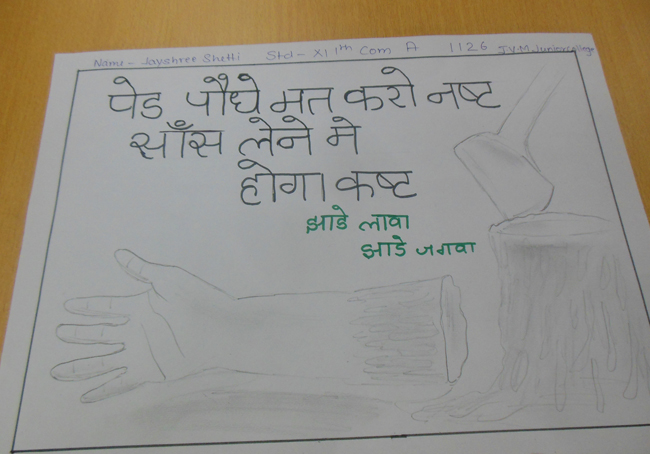 Name - Jayshree Shetti Std - XI 1th Com A 1126 J.V.M Junior college
पेड पौधे मत करो नष्ट
साँस लेने मे
होगा कष्ट
झाडे लावा
झाडे जगवा